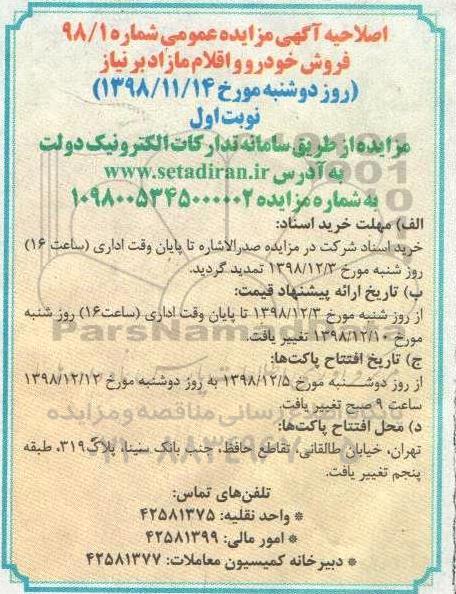 اصلاحیه آگهی مزایده عمومی شماره ۹۸/۱
فروش خودرو و اقلام مازاد بر نیاز
(روز دوشنبه مورخ ۱۳۹۸/۱۱/۱۴)
نوبت اول
مزایده از طریق سامانه تدارکات الکترونیک دولت
به آدرس www.setadiran.ir
به شماره مزایده ۱۰۹۸۰۰۵۳۴۵۰۰۰۰۰۲
الف) مهلت خرید اسناد:
خرید اسناد شرکت در مزایده صدرالاشاره تا پایان وقت اداری (ساعت ۱۶)
روز شنبه مورخ ۱۳۹۸/۱۲/۳ تمدید گردید.
ب) تاریخ ارائه پیشنهاد قیمت:
از روز شنبه مورخ ۱۳۹۸/۱۲/۳ تا پایان وقت اداری (ساعت۱۶) روز شنبه
مورخ ۱۳۹۸/۱۲/۱۰ تغییر یافت.
ParsNamadData
ج) تاریخ افتتاح پاکت‌ها:
از روز دوشنبه مورخ ۱۳۹۸/۱۲/۵ به روز دوشنبه مورخ ۱۳۹۸/۱۲/۱۲
ساعت ۹ صبح تغییر یافت.
د) محل افتتاح پاکت‌ها:
تهران، خیابان طالقانی، تقاطع حافظ، جنب بانک سینا، پلاک۳۱۹، طبقه
پنجم تغییر یافت.
تلفن‌های تماس:
* واحد نقلیه: ۴۲۵۸۱۳۷۵
* امور مالی: ۴۲۵۸۱۳۹۹
* دبیرخانه کمیسیون معاملات: ۴۲۵۸۱۳۷۷